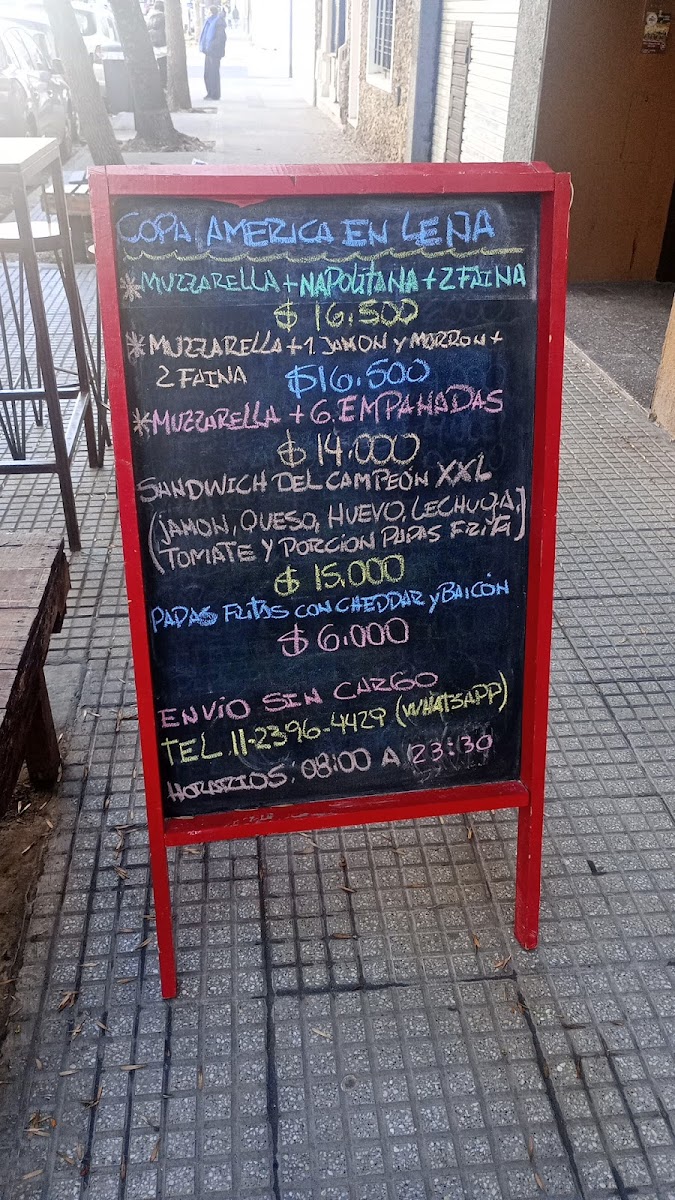 COPA AMERICA EN LEÑA
*MUZZARELLA + NAPOLITANA + 2 FAINA
$ 16.500
*MUZZARELLA + 1. JAMON Y MORRON +
2 FAINA $16.500
*MUZZARELLA + 6. EMPANADAS
$ 14.000
SANDWICH DEL CAMPEÓN XXL
(JAMON, QUESO, HUEVO, LECHUGA,
TOMATE Y PORCION PAPAS FRITA)
$ 15.000
PAPAS FRITAS CON CHEDDAR Y BAICÓN
$ 6.000
ENVÍO SIN CARGO
TEL. 11-2396-4429 (WHATSAPP)
HORARIOS: 08:00 A 23:30